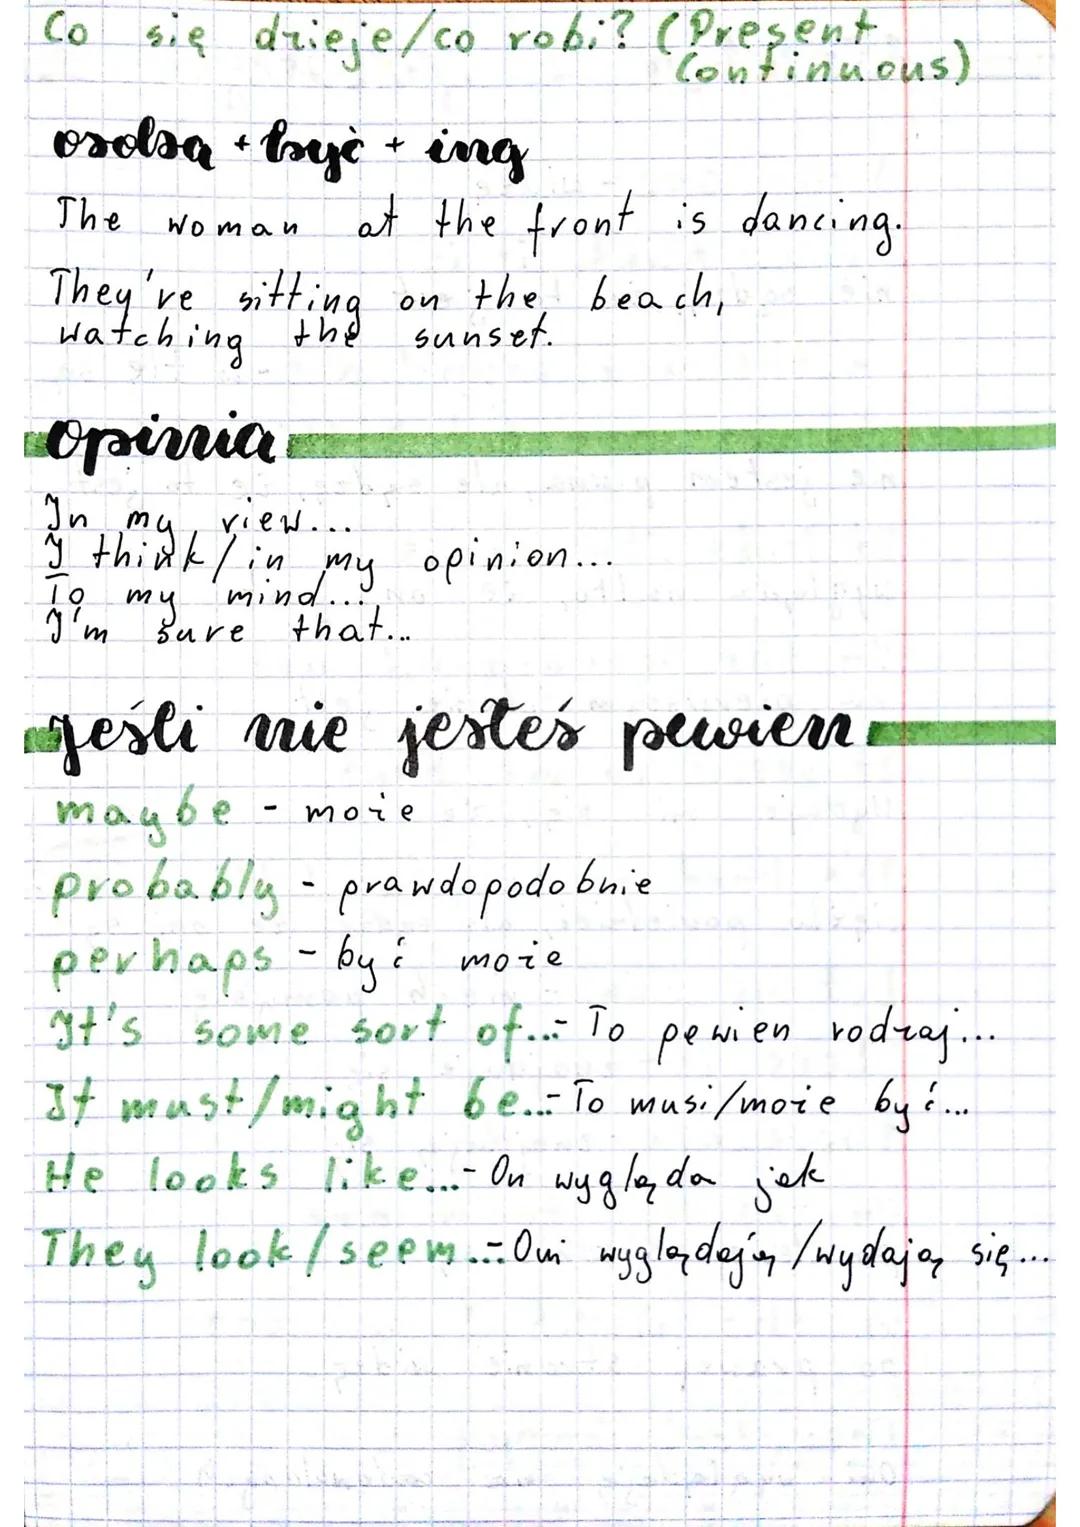 Co się dzieje/co robi? (Present
Continuous)
osoba + być + ing
The woman at the front is dancing.
They're sitting on the beach,
watching the sunset.
opinia
In my view...
I think/in my opinion...
To my mind...
I'm sure that...
jeśli nie jesteś pewien
maybe - może
probably - prawdopodobnie
perhaps - być może
It's some sort of...- To pewien rodzaj...
It must/might be...- To musi/może być...
He looks like...- On wygląda jak
They look/seem...- Oni wyglądają/wydają się...